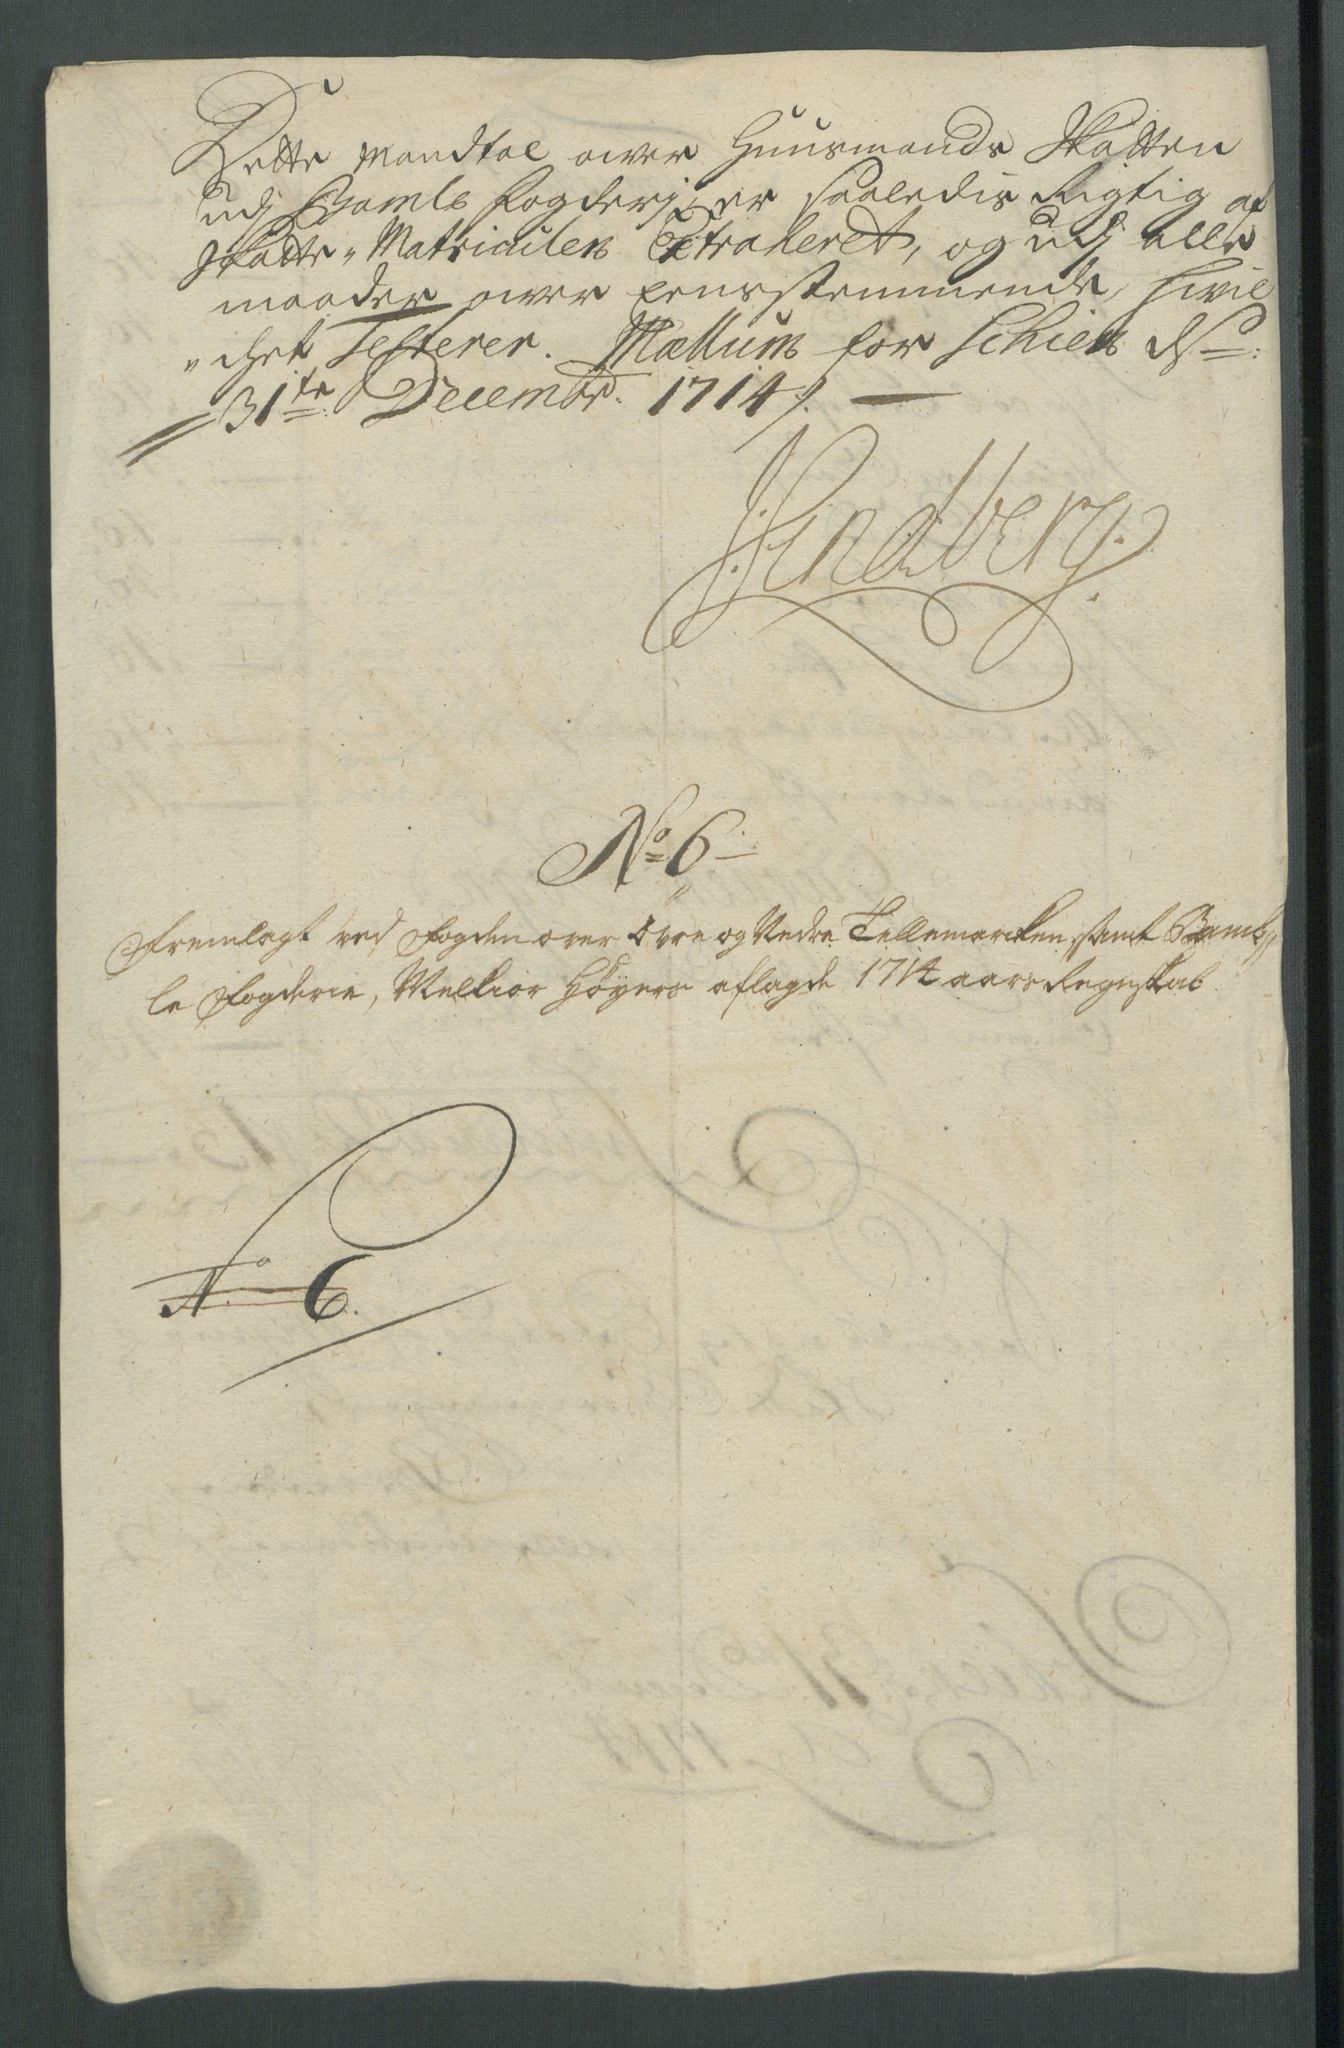 Dette Mandtal over Huusmands Skatten
udj Bamble Fogderj, er saaledis Rigtig af
Skatte-Matriculen Extraheret, og udj alle
maader over Eensstemmende, hvil
"chet Testerer. Mællum for Schien ds:
31te Decembr: 1714.
J: Lindberg.
No 6
Fremlagt ved Fogden over Øvre og Nedre Tellemarcken, samt Bamb„
le Fogderie, Melkior Høyers aflagde 1714 aars Regnskab
No 6.